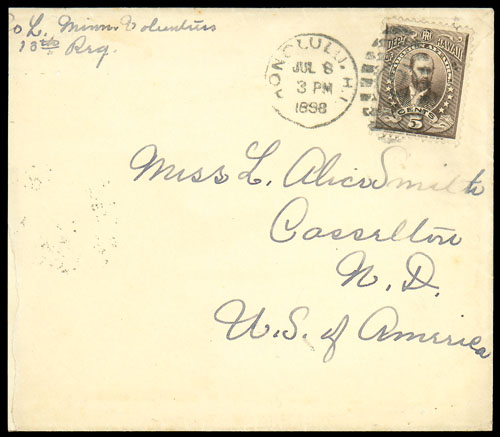 Co L., Minn Volunteers
13th Reg.
HONOLULU, H.I.
JUL 8
3 PM
1898
DEPT HAWAII
5
CENTS
Miss L. Alice Smith
Casselton
N. D.
U.S. of America